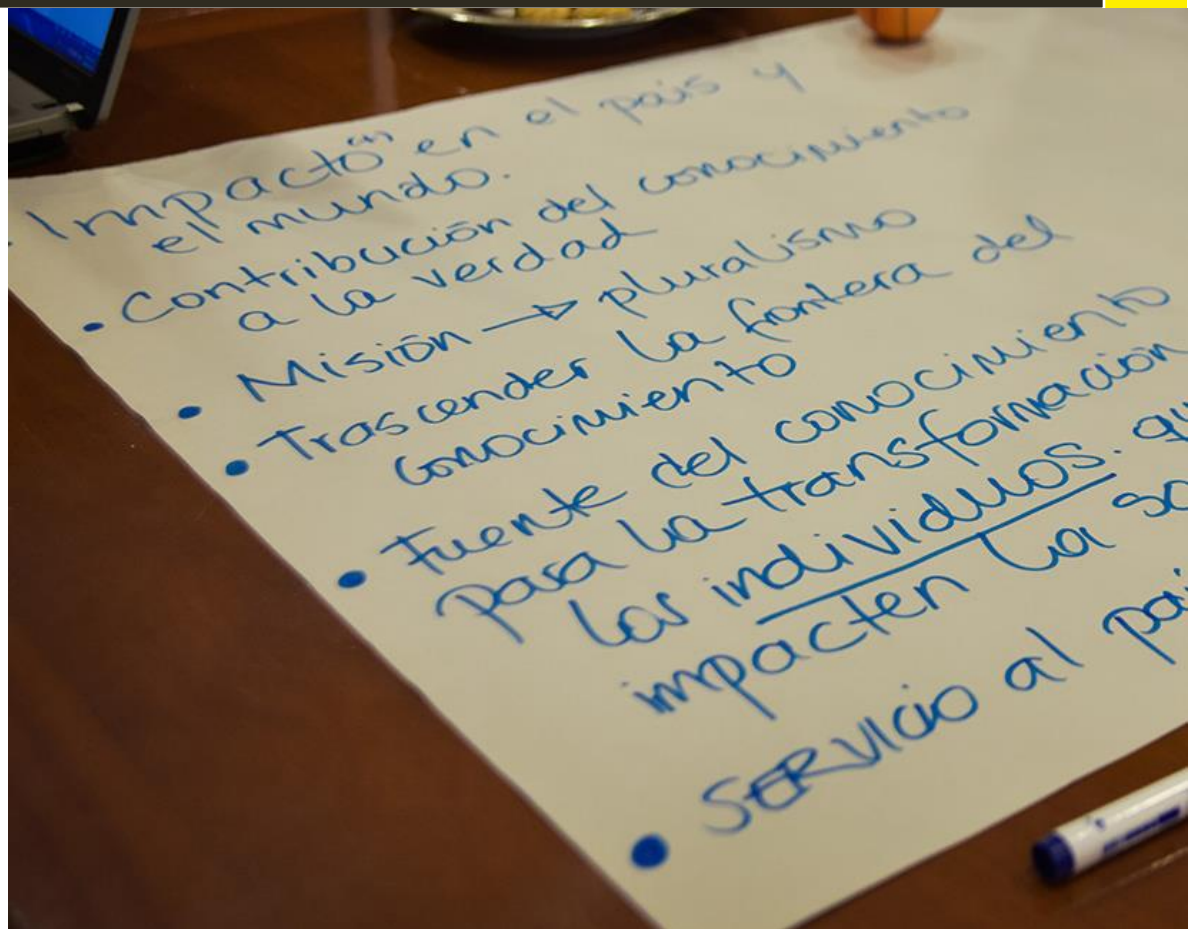 • Impacto (+) en el país y
el mundo.
• Contribución del conocimiento
a la verdad
• Misión → pluralismo
• Trascender la frontera del
conocimiento
• Fuente del conocimiento
para la transformación
los individuos.
impacten la
• SERVICIO al